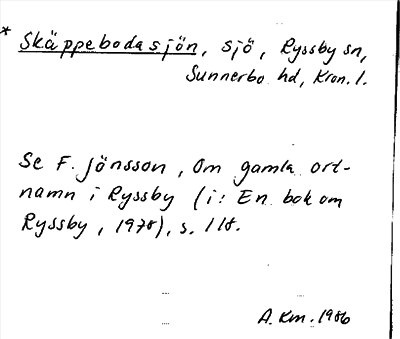 * Skäppebodasjön, sjö, Ryssby sn,
Sunnerbo hd, Kron. l.
Se F. Jönsson, Om gamla ort-
namn i Ryssby (i: En bok om
Ryssby, 1978), s. 118.
A. Km. 1986